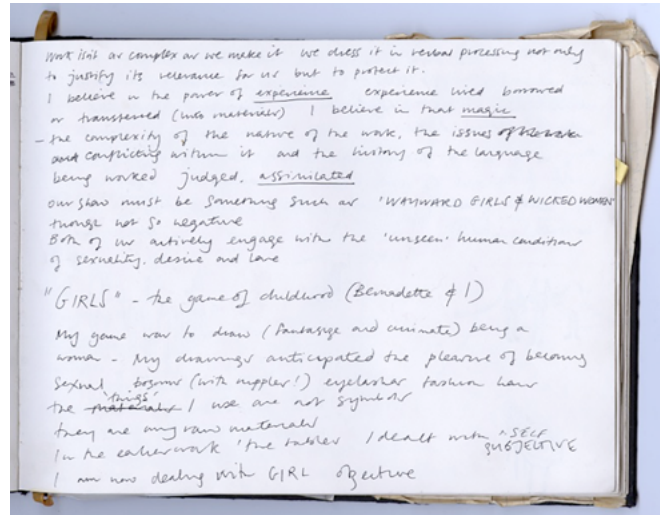 Work isnt as complex as we make it we dress it in verbal processing not only
to justify its relevance for us but to protect it.
I believe in the power of experience experience lived borrowed
or transferred (into materials) I believe in that magic
- the complexity of the nature of the work, the issues
and conflicting within it and the history of the language
being worked judged, assimilated
our show must be something such as 'WAYWARD GIRLS & WICKED WOMEN
though not so negative
Both of us actively engage with the 'unseen' human conditions
of sexuality. desire and love
"GIRLS" - the game of childhood (Bernadette & I)
My game was to draw (fantasize and animate) being a
woman - My drawings anticipated the pleasure of becoming
sexual bosoms (with nipples!) eyelashes fashion hair
the 'things' I use are not symbols
they are my raw materials
In the earlier work 'the tables I dealt with ^SELF
SUBJECTIVE
I am now dealing with GIRL objective